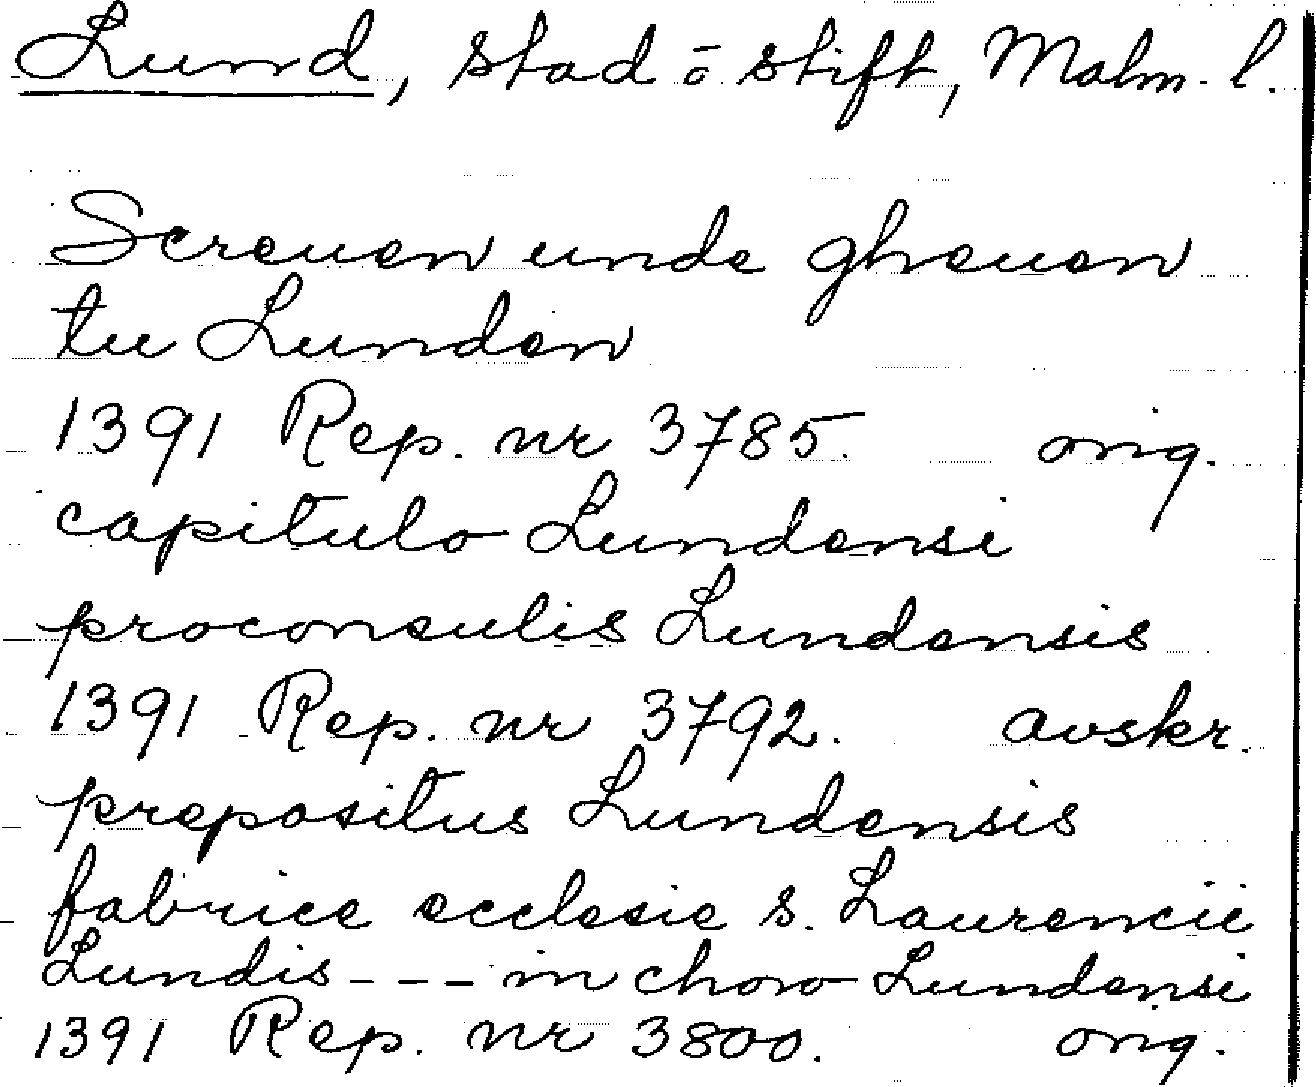 Lund, stad o stift, Malm. l.
Screuen unde gheuen
tu Lunden
1391 Rep. nr 3785. orig.
capitulo Lundensi
proconsulis Lundensis
1391 Rep. nr 3792. avskr.
prepositus Lundensis
fabrice ecclesie s. Laurencii
Lundis - - - in choro Lundensi
1391 Rep. nr 3800. orig.